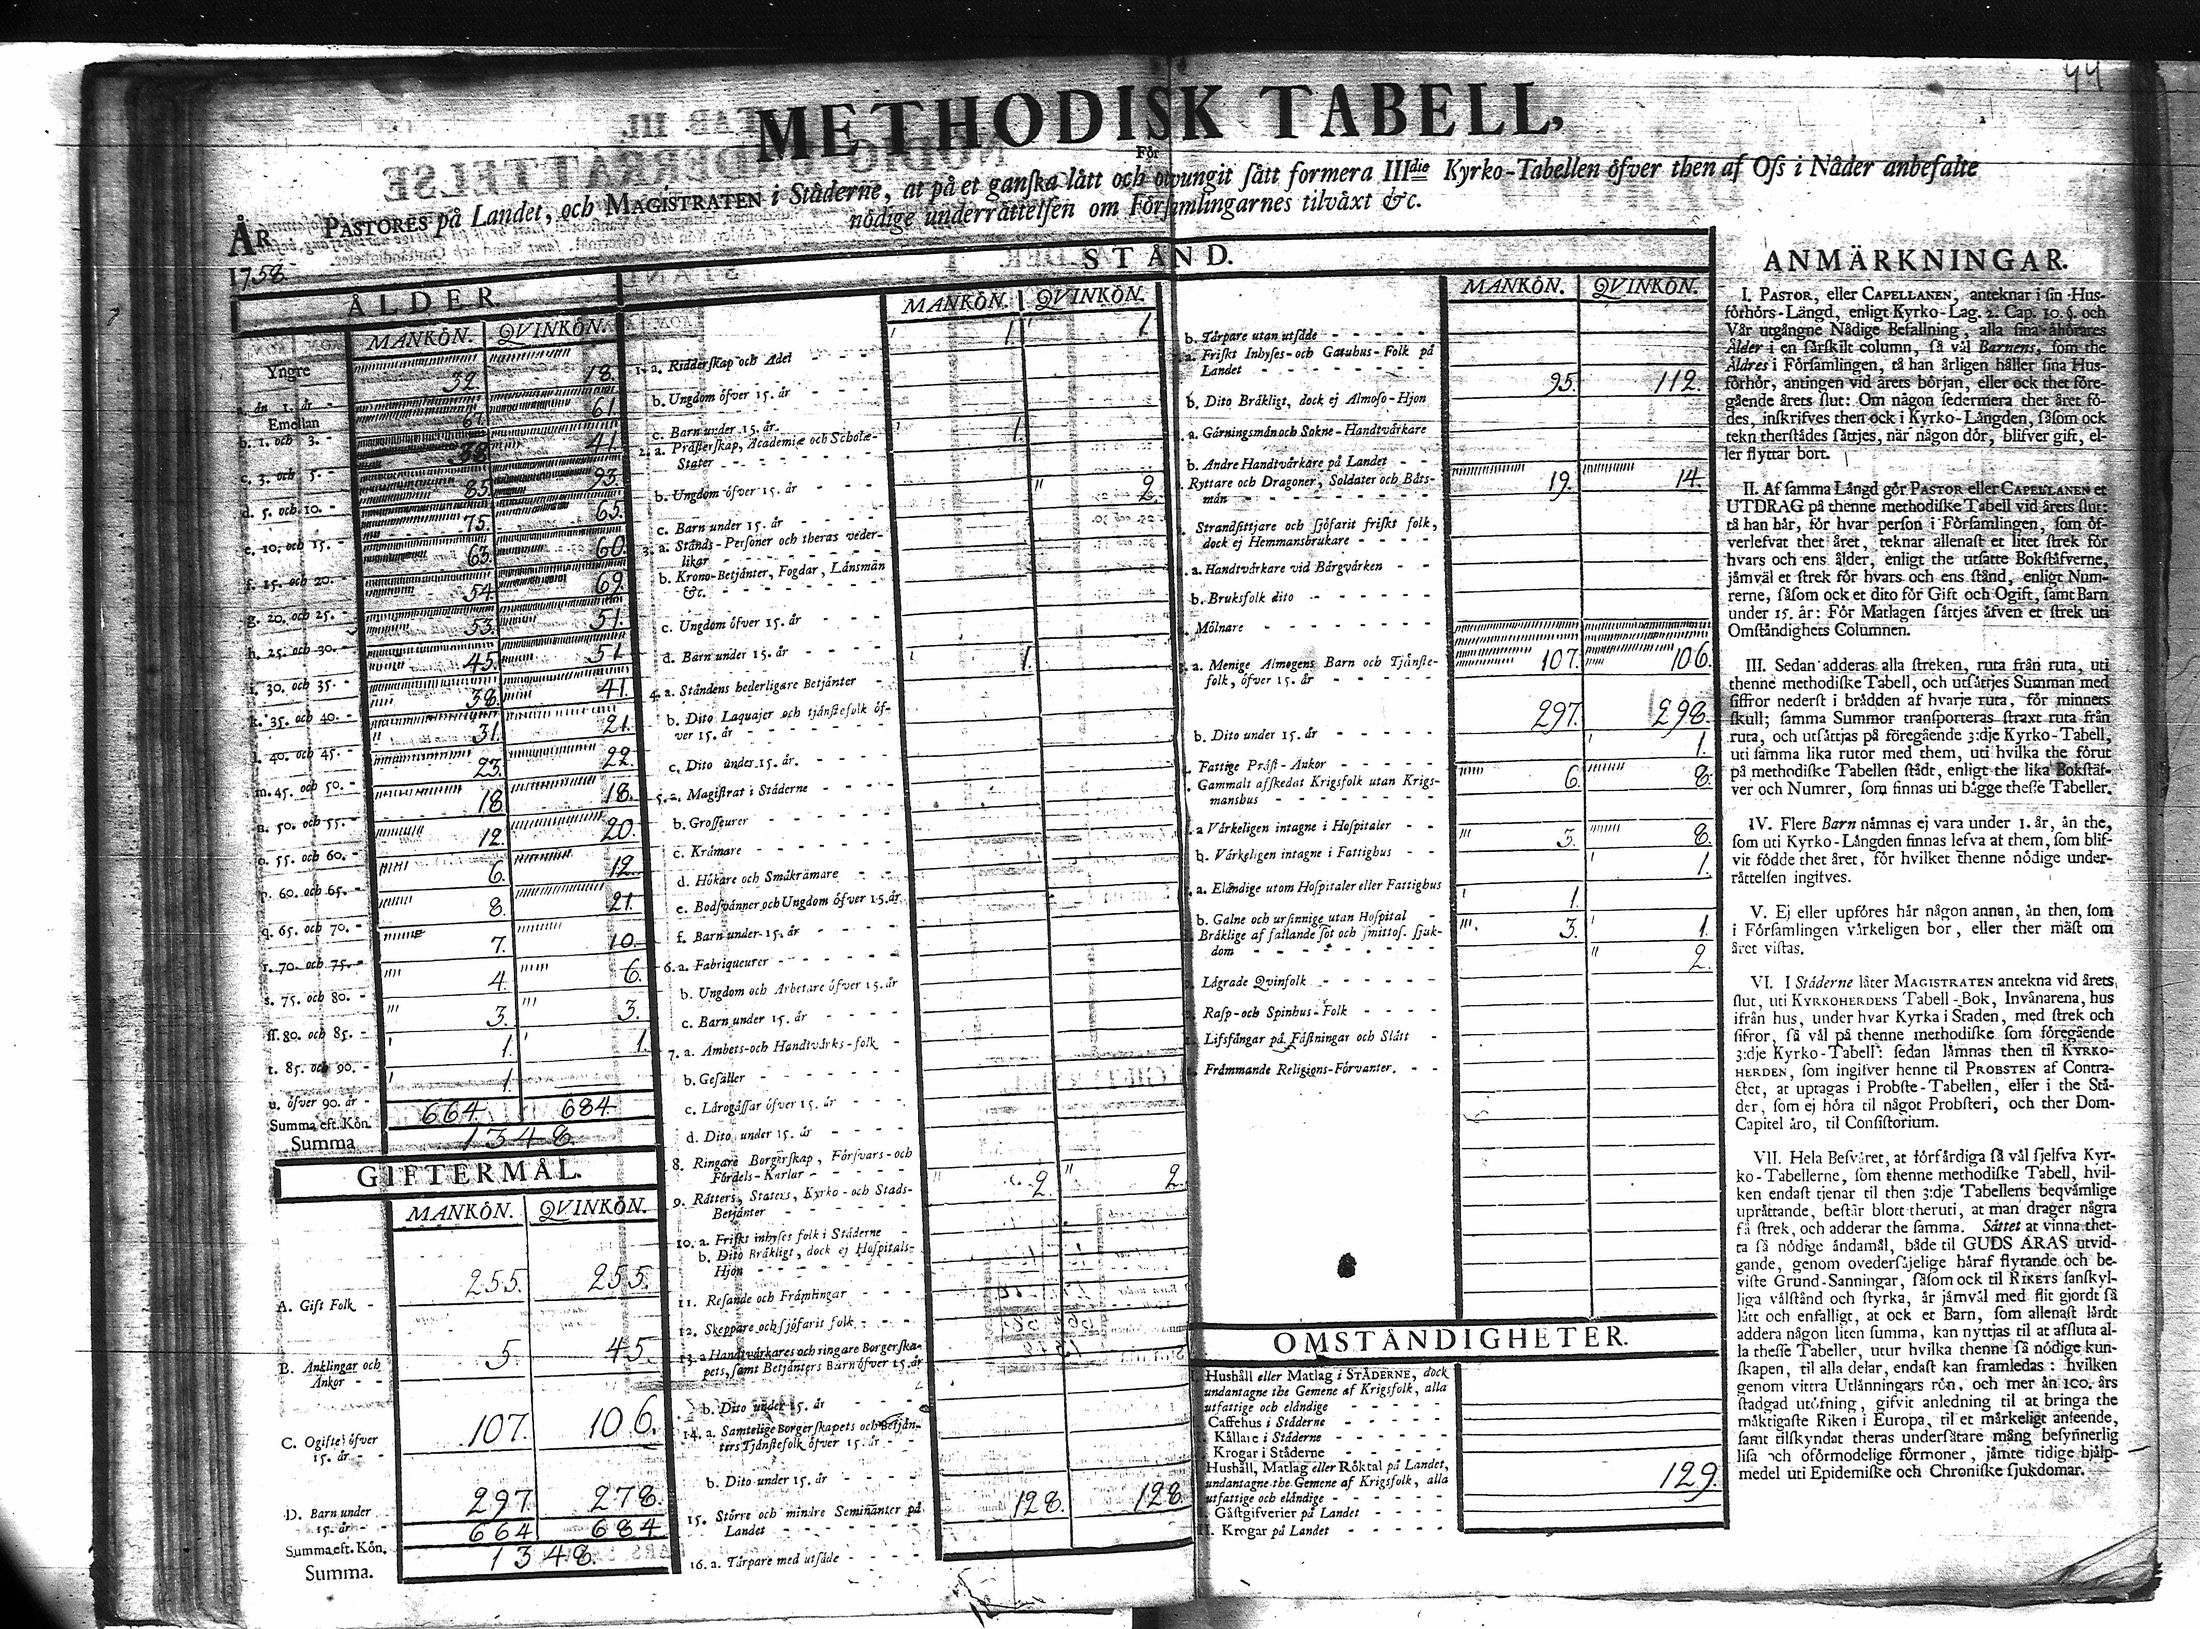 44
METHODISK TABELL,
För
PASTORES på Landet, och MAGISTRATEN i Städerne, at på et ganska lätt och otvungit sätt formera IIIdie Kyrko-Tabellen öfver then af Oss i Nåder anbefalte
nödige underrättelsen om Församlingarnes tilväxt &c.
ÅR
1758.
ÅLDER.
MANKÖN. QVINKÖN.
Yngre
a. än 1. år - 32. 18.
Emellan
b. 1. och 3. - 67. 61.
c. 3. och 5. - 38. 41.
d. 5. och 10. - 85. 93.
e. 10. och 15. - 75. 65.
f. 15. och 20. - 63. 60.
g. 20. och 25. - 54. 69.
h. 25. och 30. - 53. 51.
i. 30. och 35. - 45. 51.
k. 35. och 40. - 38. 41.
l. 40. och 45. - 31. 21.
m. 45. och 50. - 23. 22.
n. 50. och 55. - 18. 18.
o. 55. och 60. - 12. 20.
p. 60. och 65. - 6. 12.
q. 65. och 70. - 8. 21.
r. 70. och 75. - 7. 10.
s. 75. och 80. - 4. 6.
ss. 80. och 85. - 3. 3.
t. 85. och 90. - 1. 1.
u. öfver 90. år - 1.
Summa eft. Kön. 664. 684.
Summa 1348.
GIFTERMÅL.
MANKÖN. QVINKÖN.
A. Gift Folk - 255. 255.
B. Änklingar och
Änkor - - 5. 45.
C. Ogifte öfver
15. år - - 107. 106.
D. Barn under
15. år - - 297. 278.
Summa eft. Kön. 664. 684
Summa. 1348.
STÅND.
MANKÖN. QVINKÖN.
1. a. Ridderskap och Adel - - - - 1. 1.
b. Ungdom öfver 15. år - - - -
c. Barn under 15. år. - - - -
2. a. Prästerskap, Academiæ och Scholæ-
Stater - - - - - - 1.
b. Ungdom öfver 15. år - - - -
c. Barn under 15. år - - - - 2.
3. a. Stånds-Personer och theras veder-
likar - - - - - -
b. Krono-Betjänter, Fogdar, Länsmän
&c. - - - - - -
c. Ungdom öfver 15. år - - -
d. Barn under 15. år - - - -
4. a. Ståndens hederligare Betjänter - 1.
b. Dito Laquajer och tjänstefolk öf-
ver 15. år - - - - -
c. Dito under 15. år. - - - -
5. a. Magistrat i Städerne - - - -
b. Grosseurer - - - - - -
c. Krämare - - - - - -
d. Hökare och Småkrämare - -
e. Bodsvänner och Ungdom öfver 15. år.
f. Barn under 15. år - - - -
6. a. Fabriqueurer - - - - - -
b. Ungdom och Arbetare öfver 15. år
c. Barn under 15. år - - - -
7. a. Ämbets-och Handtvärks-folk -
b. Gesäller - - - - - -
c. Lärogåssar öfver 15. år - - -
d. Dito under 15. år - - - -
8. Ringare Borgerskap, Försvars-och
Fördels-Karlar - - - - -
9. Rätters, Staters, Kyrko-och Stads-
Betjänter - - - - - - 2. 2.
10. a. Friskt inhyses folk i Städerne -
b. Dito Bräkligt, dock ej Hospitals-
Hjon - - - - - -
11. Resande och Främlingar - - -
12. Skeppare och sjöfarit folk - - -
13. a Handtvärkares och ringare Borgerska-
pets, samt Betjänters Barn öfver 15. år
b. Dito under 15. år - - - -
14. a. Samtelige Borgerskapets och Betjän-
ters Tjänstefolk öfver 15. år - -
b. Dito under 15. år - - - -
15. Större och mindre Seminanter på
Landet - - - - - - 128. 128.
16. a. Tårpare med utsäde - - - -
MANKÖN. QVINKÖN.
b. Tårpare utan utsäde - - - - -
a. Friskt Inhyses-och Gatuhus-Folk på
Landet - - - - - - -
b. Dito Bräkligt, dock ej Almoso-Hjon 95. 112.
a. Gärningsmän och Sokne-Handtvärkare
b. Andre Handtvärkare på Landet - -
Ryttare och Dragoner, Soldater och Båts-
män - - - - - - - 19. 14.
Strandsittjare och sjöfarit friskt folk,
dock ej Hemmansbrukare - - - -
a. Handtvärkare vid Bärgvärken - -
b. Bruksfolk dito - - - - - -
Mölnare - - - - - - -
a. Menige Almogens Barn och Tjänste-
folk, öfver 15. år - - - - - 107. 106.
b. Dito under 15. år - - - - - 297. 298.
Fattige Präst-Änkor - - - - 1.
Gammalt afskedat Krigsfolk utan Krigs-
manshus - - - - - - - 6. 8.
a Värkeligen intagne i Hospitaler - - 3. 8.
b. Värkeligen intagne i Fattighus - - 1.
a. Eländige utom Hospitaler eller Fattighus 1.
b. Galne och ursinnige utan Hospital -
Bräklige af fallande sot och smittos. sjuk-
dom - - - - - - - 3. 1.
Lägrade Qvinfolk - - - - - 2.
Rasp-och Spinhus-Folk - - - -
Lifsfångar på Fästningar och Slått -
Främmande Religions-Förvanter. - -
OMSTÄNDIGHETER.
Hushåll eller Matlag i STÄDERNE, dock
undantagne the Gemene af Krigsfolk, alla
utfattige och eländige - - - - -
Caffehus i Städerne - - - - -
Källare i Städerne - - - - -
Krogar i Städerne - - - - -
Hushåll, Matlag eller Röktal på Landet,
undantagne the Gemene af Krigsfolk, alla
utfattige och eländige - - - - - 129.
Gästgifverier på Landet - - - -
Krogar på Landet - - - - -
ANMÄRKNINGAR.
I. PASTOR, eller CAPELLANEN, anteknar i sin Hus-
förhörs-Längd, enligt Kyrko-Lag. 2. Cap. 10. §. och
Vår utgångne Nådige Befallning, alla sina åhörares
Ålder i en särskilt column, så väl Barnens, som the
Äldres i Församlingen, tå han årligen håller sina Hus-
förhör, antingen vid årets början, eller ock thet före-
gående årets slut: Om någon sedermera thet året fö-
des, inskrifves then ock i Kyrko-Längden, såsom ock
tekn therstädes sättjes, när någon dör, blifver gift, el-
ler flyttar bort.
II. Af samma Längd gör PASTOR eller CAPELLANEN et
UTDRAG på thenne methodiske Tabell vid årets slut:
tå han här, för hvar person i Församlingen, som öf-
verlefvat thet året, teknar allenast et litet strek för
hvars och ens ålder, enligt the utsatte Bokstäfverne,
jämväl et strek för hvars och ens stånd, enligt Num-
rerne, såsom ock et dito för Gift och Ogift, samt Barn
under 15. år: För Matlagen sättjes äfven et strek uti
Omständighets Columnen.
III. Sedan adderas alla streken, ruta från ruta, uti
thenne methodiske Tabell, och utsättjes Summan med
siffror nederst i brädden af hvarje ruta, för minnets
skull; samma Summor transporteras straxt ruta från
ruta, och utsättjas på föregående 3:dje Kyrko-Tabell,
uti samma lika rutor med them, uti hvilka the förut
på methodiske Tabellen stådt, enligt the lika Bokstäf-
ver och Numrer, som finnas uti bägge thesse Tabeller.
IV. Flere Barn nämnas ej vara under 1. år, än the,
som uti Kyrko-Längden finnas lefva at them, som blif-
vit födde thet året, för hvilket thenne nödige under-
rättelsen ingifves.
V. Ej eller upföres här någon annan, än then, som
i Församlingen värkeligen bor, eller ther mäst om
året vistas.
VI. I Städerne låter MAGISTRATEN antekna vid årets
slut, uti KYRKOHERDENS Tabell-Bok, Invånarena, hus
ifrån hus, under hvar Kyrka i Staden, med strek och
sifror, så väl på thenne methodiske som föregående
3:dje Kyrko-Tabell: sedan lämnas then til KYRKO-
HERDEN, som ingifver henne til PROBSTEN af Contra-
ctet, at uptagas i Probste-Tabellen, eller i the Stä-
der, som ej höra til något Probsteri, och ther Dom-
Capitel äro, til Consistorium.
VII. Hela Besväret, at förfärdiga så väl sjelfva Kyr-
ko-Tabellerne, som thenne methodiske Tabell, hvil-
ken endast tjenar til then 3:dje Tabellens beqvämlige
uprättande, består blott theruti, at man drager några
få strek, och adderar the samma. Sättet at vinna thet-
ta så nödige ändamål, både til GUDS ÄRAS utvid-
gande, genom ovedersäjelige häraf flytande och be-
viste Grund-Sanningar, såsom ock til RIKETS sanskyl-
liga välstånd och styrka, är jämväl med flit gjordt så
lätt och enfalligt, at ock et Barn, som allenast lärdt
addera någon liten summa, kan nyttjas til at afsluta al-
la thesse Tabeller, utur hvilka thenne så nödige kun-
skapen, til alla delar, endast kan framledas: hvilken
genom vittra Utlänningars rön, och mer än 100. års
stadgad utöfning, gifvit anledning til at bringa the
mäktigaste Riken i Europa, til et märkeligt anseende,
samt tilskyndat theras undersåtare mång besynnerlig
lisa och oförmodelige förmoner, jämte tidige hjälp-
medel uti Epidemiske och Chroniske sjukdomar.